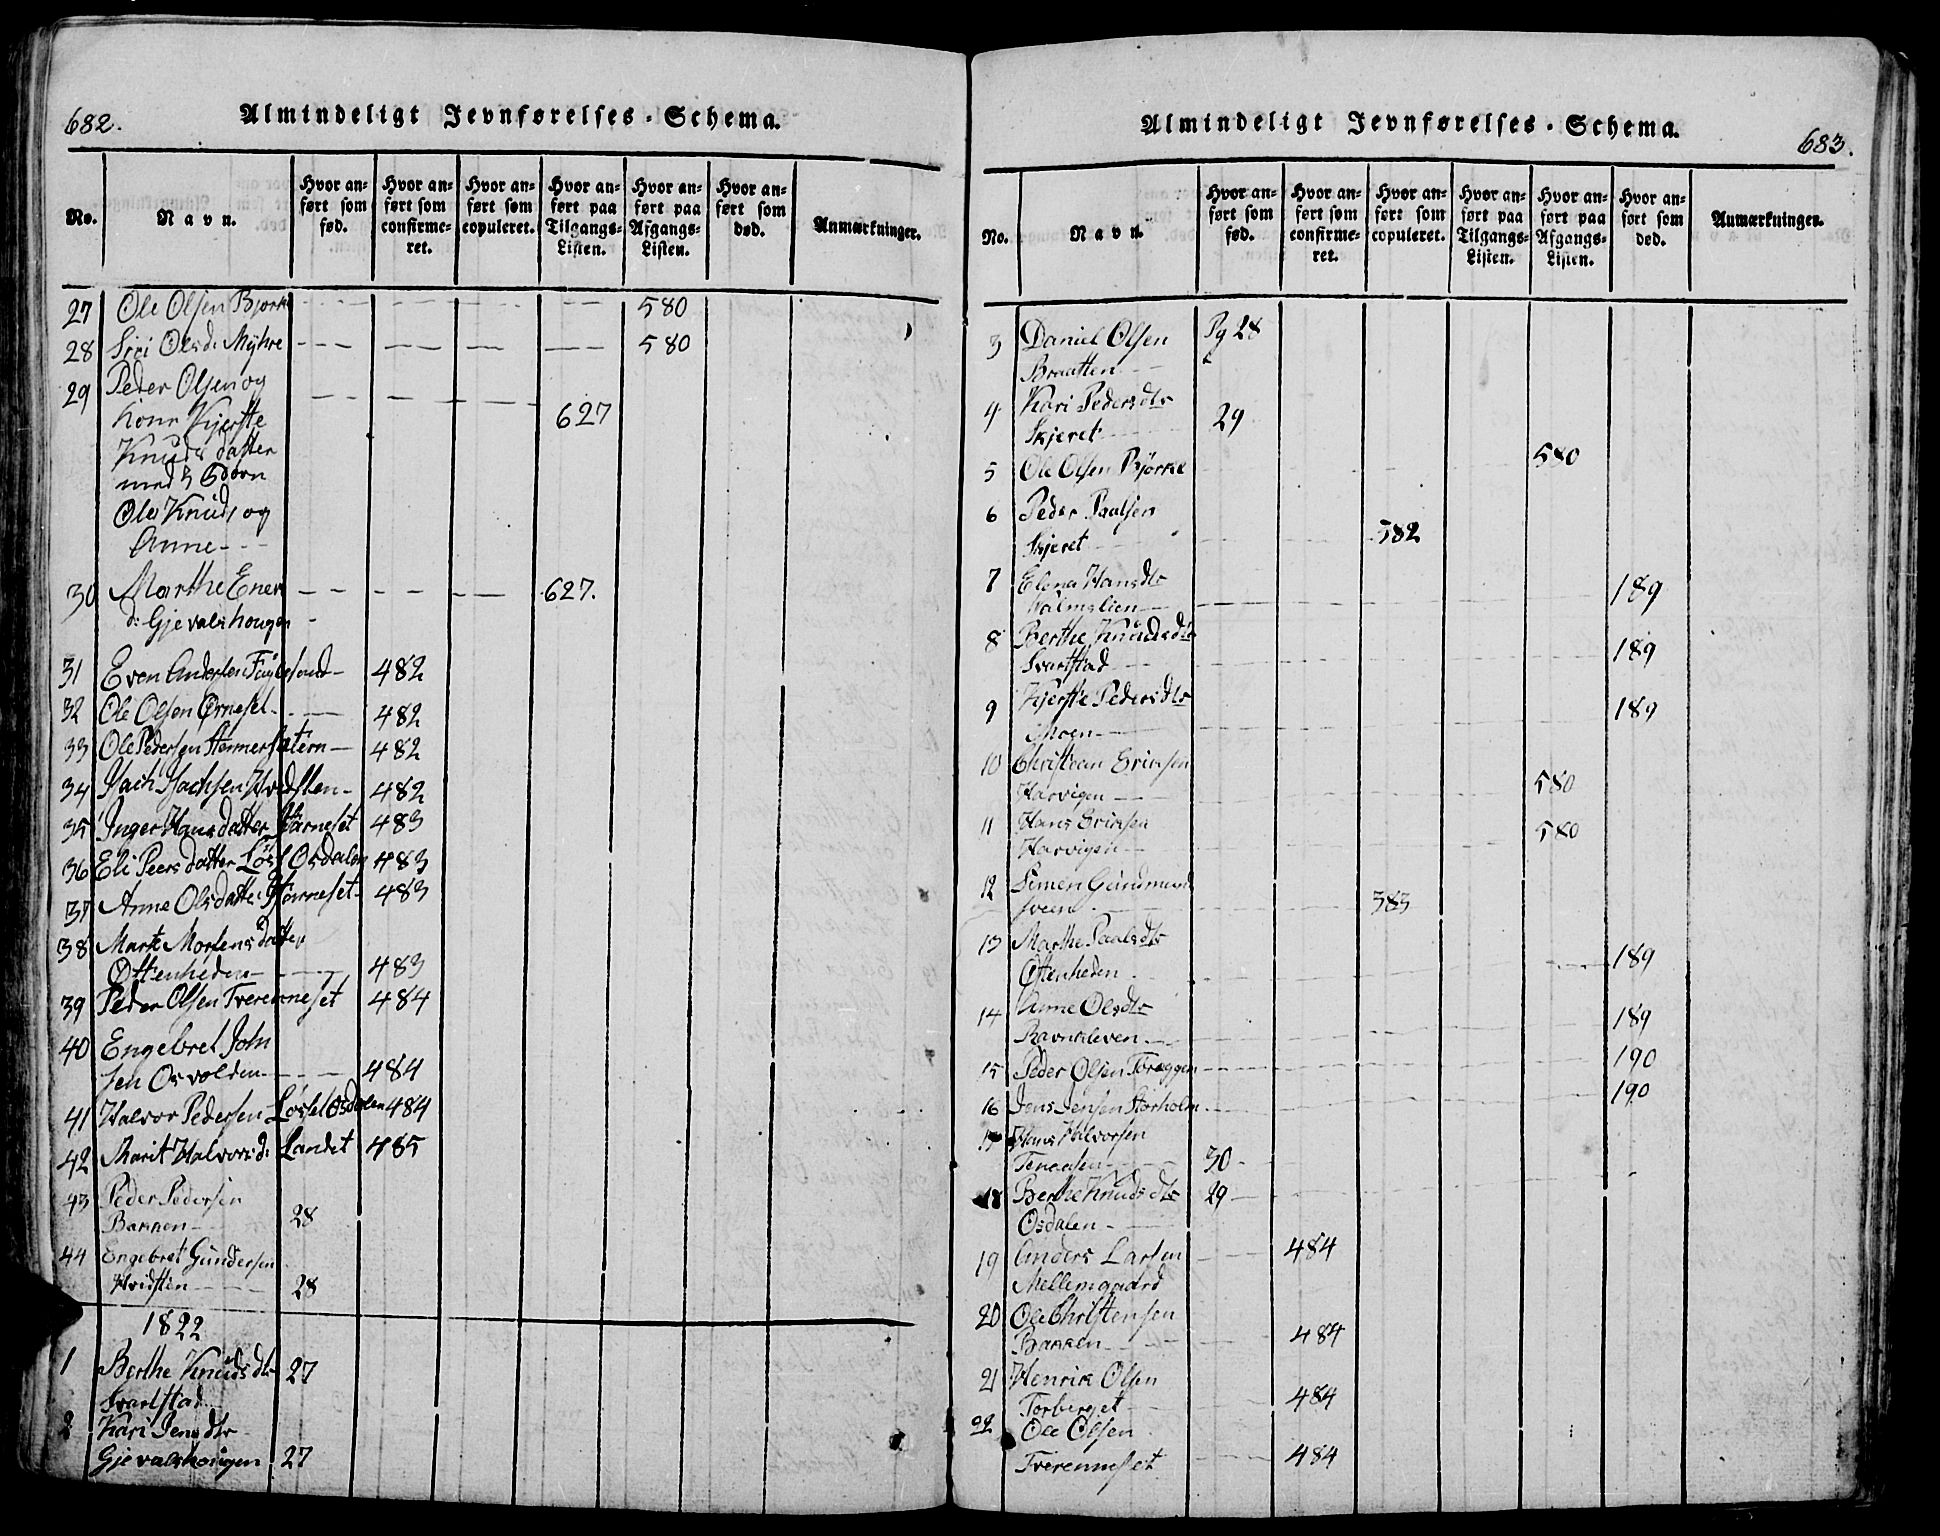 682.
Almindeligt Jevnførelses-Schema.
No.
Navn.
Hvor anført som fød.
Hvor anført som confirmeret.
Hvor anført som copuleret.
Hvor anført paa Tilgangs-Listen.
Hvor anført paa Afgangs-Listen.
Hvor anført som død.
Anmærkninger.
27 Ole Olsen Bjørke 580
28 Siri Olsd: Myhre 580
29 Peder Olsen og
Kone Kjerste 627
Knuds datter
med 3 Børn
Ole Knud og
Anne
30 Marthe Ener 627.
d: Gjevalshougen
31 Even Andersen Fuglesund 482
32 Ole Olsen Ørneset 482
33 Ole Pedersen Stemersætern 482
34 Isach Isachsen Hvidsten 482
35 Inger Hansdatter Hørneset 483
36 Eli Peersdatter Løset Osdalen 483
37 Anne Olsdatter Hørneset 483
38 Marte Mortensdatter
Ottenheden 483
39 Peder Olsen Tverenneset 484
40 Engebret John
sen Osvolden 484
41 Halvor Pedersen Løset Osdalen 484
42 Marit Halvorsd: Landet 485
43 Peder Pedersen
Bakken 28
44 Engebret Gundersen
Hvidsten 28
1822
1 Berthe Knudsdtr 27
Svartstad
2 Kari Jensdtr
Gjevalshougen 27
683.
Almindeligt Jevnførelses-Schema.
No.
Navn.
Hvor anført som fød.
Hvor anført som confirmeret.
Hvor anført som copuleret.
Hvor anført paa Tilgangs-Listen.
Hvor anført paa Afgangs-Listen.
Hvor anført som død.
Anmærkninger.
3 Daniel Olsen Pg 28
Braatten
4 Kari Pedersdtr
Skjeret 29
5 Ole Olsen Bjørke 580
6 Peder Paulsen
Skjeret 382
7 Elena Hansdtr
Holmslien 189
8 Berthe Knudsdtr
Svartstad 189
9 Kjerstie Pedersdtr
Moen 189
10 Christian Eriksen
Harvigen 580
11 Hans Eriksen
Harvigen 580
12 Simen Gundmund
sveen 383
13 Marthe Paulsdtr
Ottenheden 189
14 Anne Olsdtr
Ravnkleven 189
15 Peder Olsen Toraggen 190
16 Jens Jensen Storholm 190
17 Hans Halvorsen
Tenaasen 30
18 Berthe Knudsdtr 29
Osdalen
19 Anders Larsen 484
Mellemgaard
20 Ole Christensen
Bakken 484
21 Henrik Olsen
Torberget 484
22 Ole Olsen
Tverenneset 484